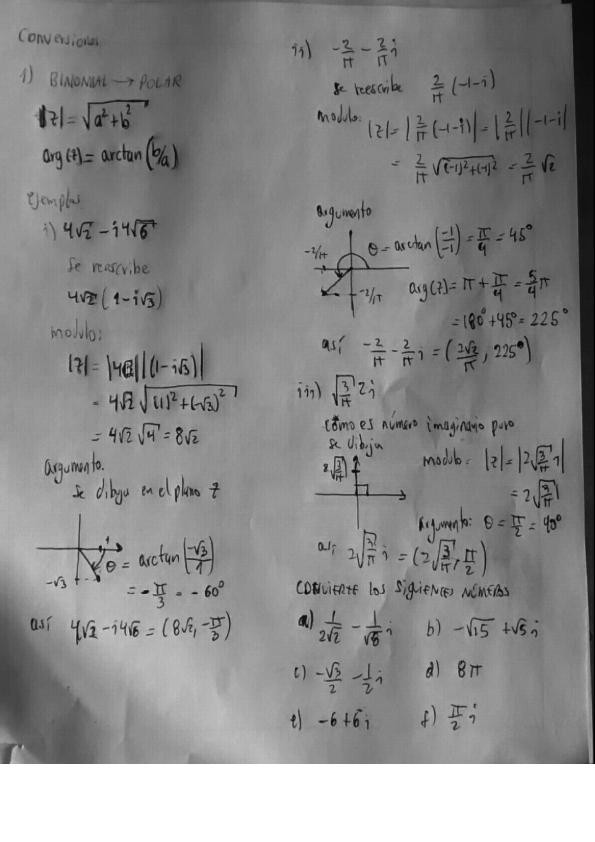 Conversiones
1) BINONIAL → POLAR
|z| = √(a² + b²)
arg(z) = arctan(b/a)
Ejemplos
i) 4√2 - i4√6
Se reescribe
4√2 (1 - i√3)
modulo:
|z| = |4√2| |(1 - i√3)|
= 4√2 √((1)² + (-√3)²)
= 4√2 √4 = 8√2
argumento.
Se dibuja en el plano z
1
-√3
θ = arctan(-√3/1)
= -π/3 = -60°
así 4√2 - i4√6 = (8√2, -π/3)
ii) -2/π - 2/π i
Se reescribe 2/π (-1-i)
modulo: |z| = |2/π (-1-i)| = |2/π| |-1-i|
= 2/π √((-1)² + (-1)²) = 2/π √2
argumento
-2/π
-2/π
θ = arctan(-1/-1) = π/4 = 45°
arg(z) = π + π/4 = 5/4 π
= 180° + 45° = 225°
así -2/π - 2/π i = (2√2/π, 225°)
iii) √(3/π) 2i
cómo es número imaginario puro
se dibuja
modulo: |z| = |2√(3/π) i|
= 2√(3/π)
Argumento: θ = π/2 = 90°
así 2√(3/π) i = (2√(3/π), π/2)
CONVIERTE LOS SIGIENTES NÚMEROS
a) 1/(2√2) - 1/√8 i b) -√15 + √5 i
c) -√3/2 - 1/2 i d) 8π
e) -6 + 6i f) π/2 i